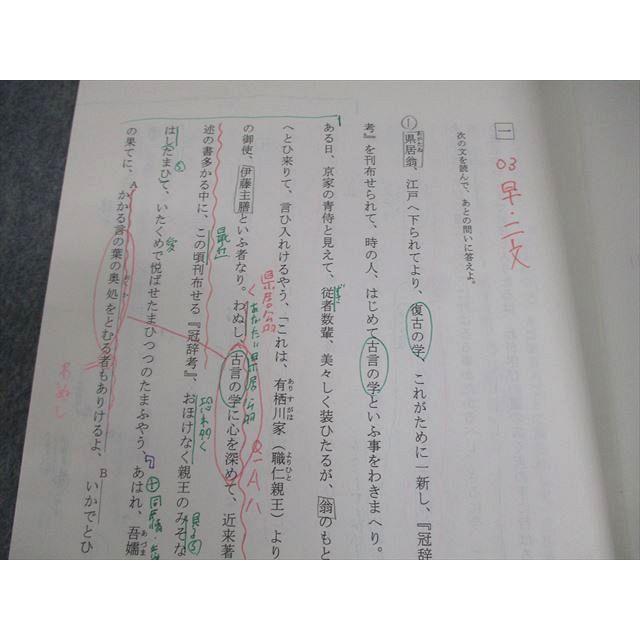 一
03 早・二文
次の文を読んで、あとの問いに答えよ。
① 県居翁、江戸へ下られてより、復古の学、これがために一新し、『冠辞
考』を刊布せられて、時の人、はじめて古言の学といふ事をわきまへり。
ある日、京家の青侍と見えて、従者数輩、美々しく装ひたるが、翁のもと
へとひ来りて、言ひ入れけるやう、「これは、有栖川家（職仁親王）より
ありすがは
よりひと
の御使、伊藤主膳といふ者なり。わぬし、古言の学に心を深めて、近来著
県居翁
あなた＝県居翁
述の書多かる中に、この頃刊布せる『冠辞考』、おほけなく親王のみそな
最近
恐れ多く
見る⑤
はしたまひて、いたくめで悦ばせたまひつつのたまふやう、あはれ、吾嬬
⑤
あづま
の果てに、Aかかる言の葉の奥処をとむる者もありけるよ、Bいかでとひ
わぬし